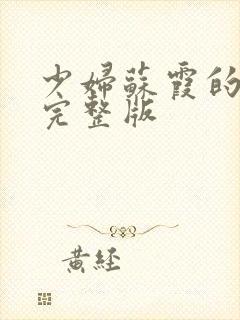 少婦蘇霞的
完整版
黃經